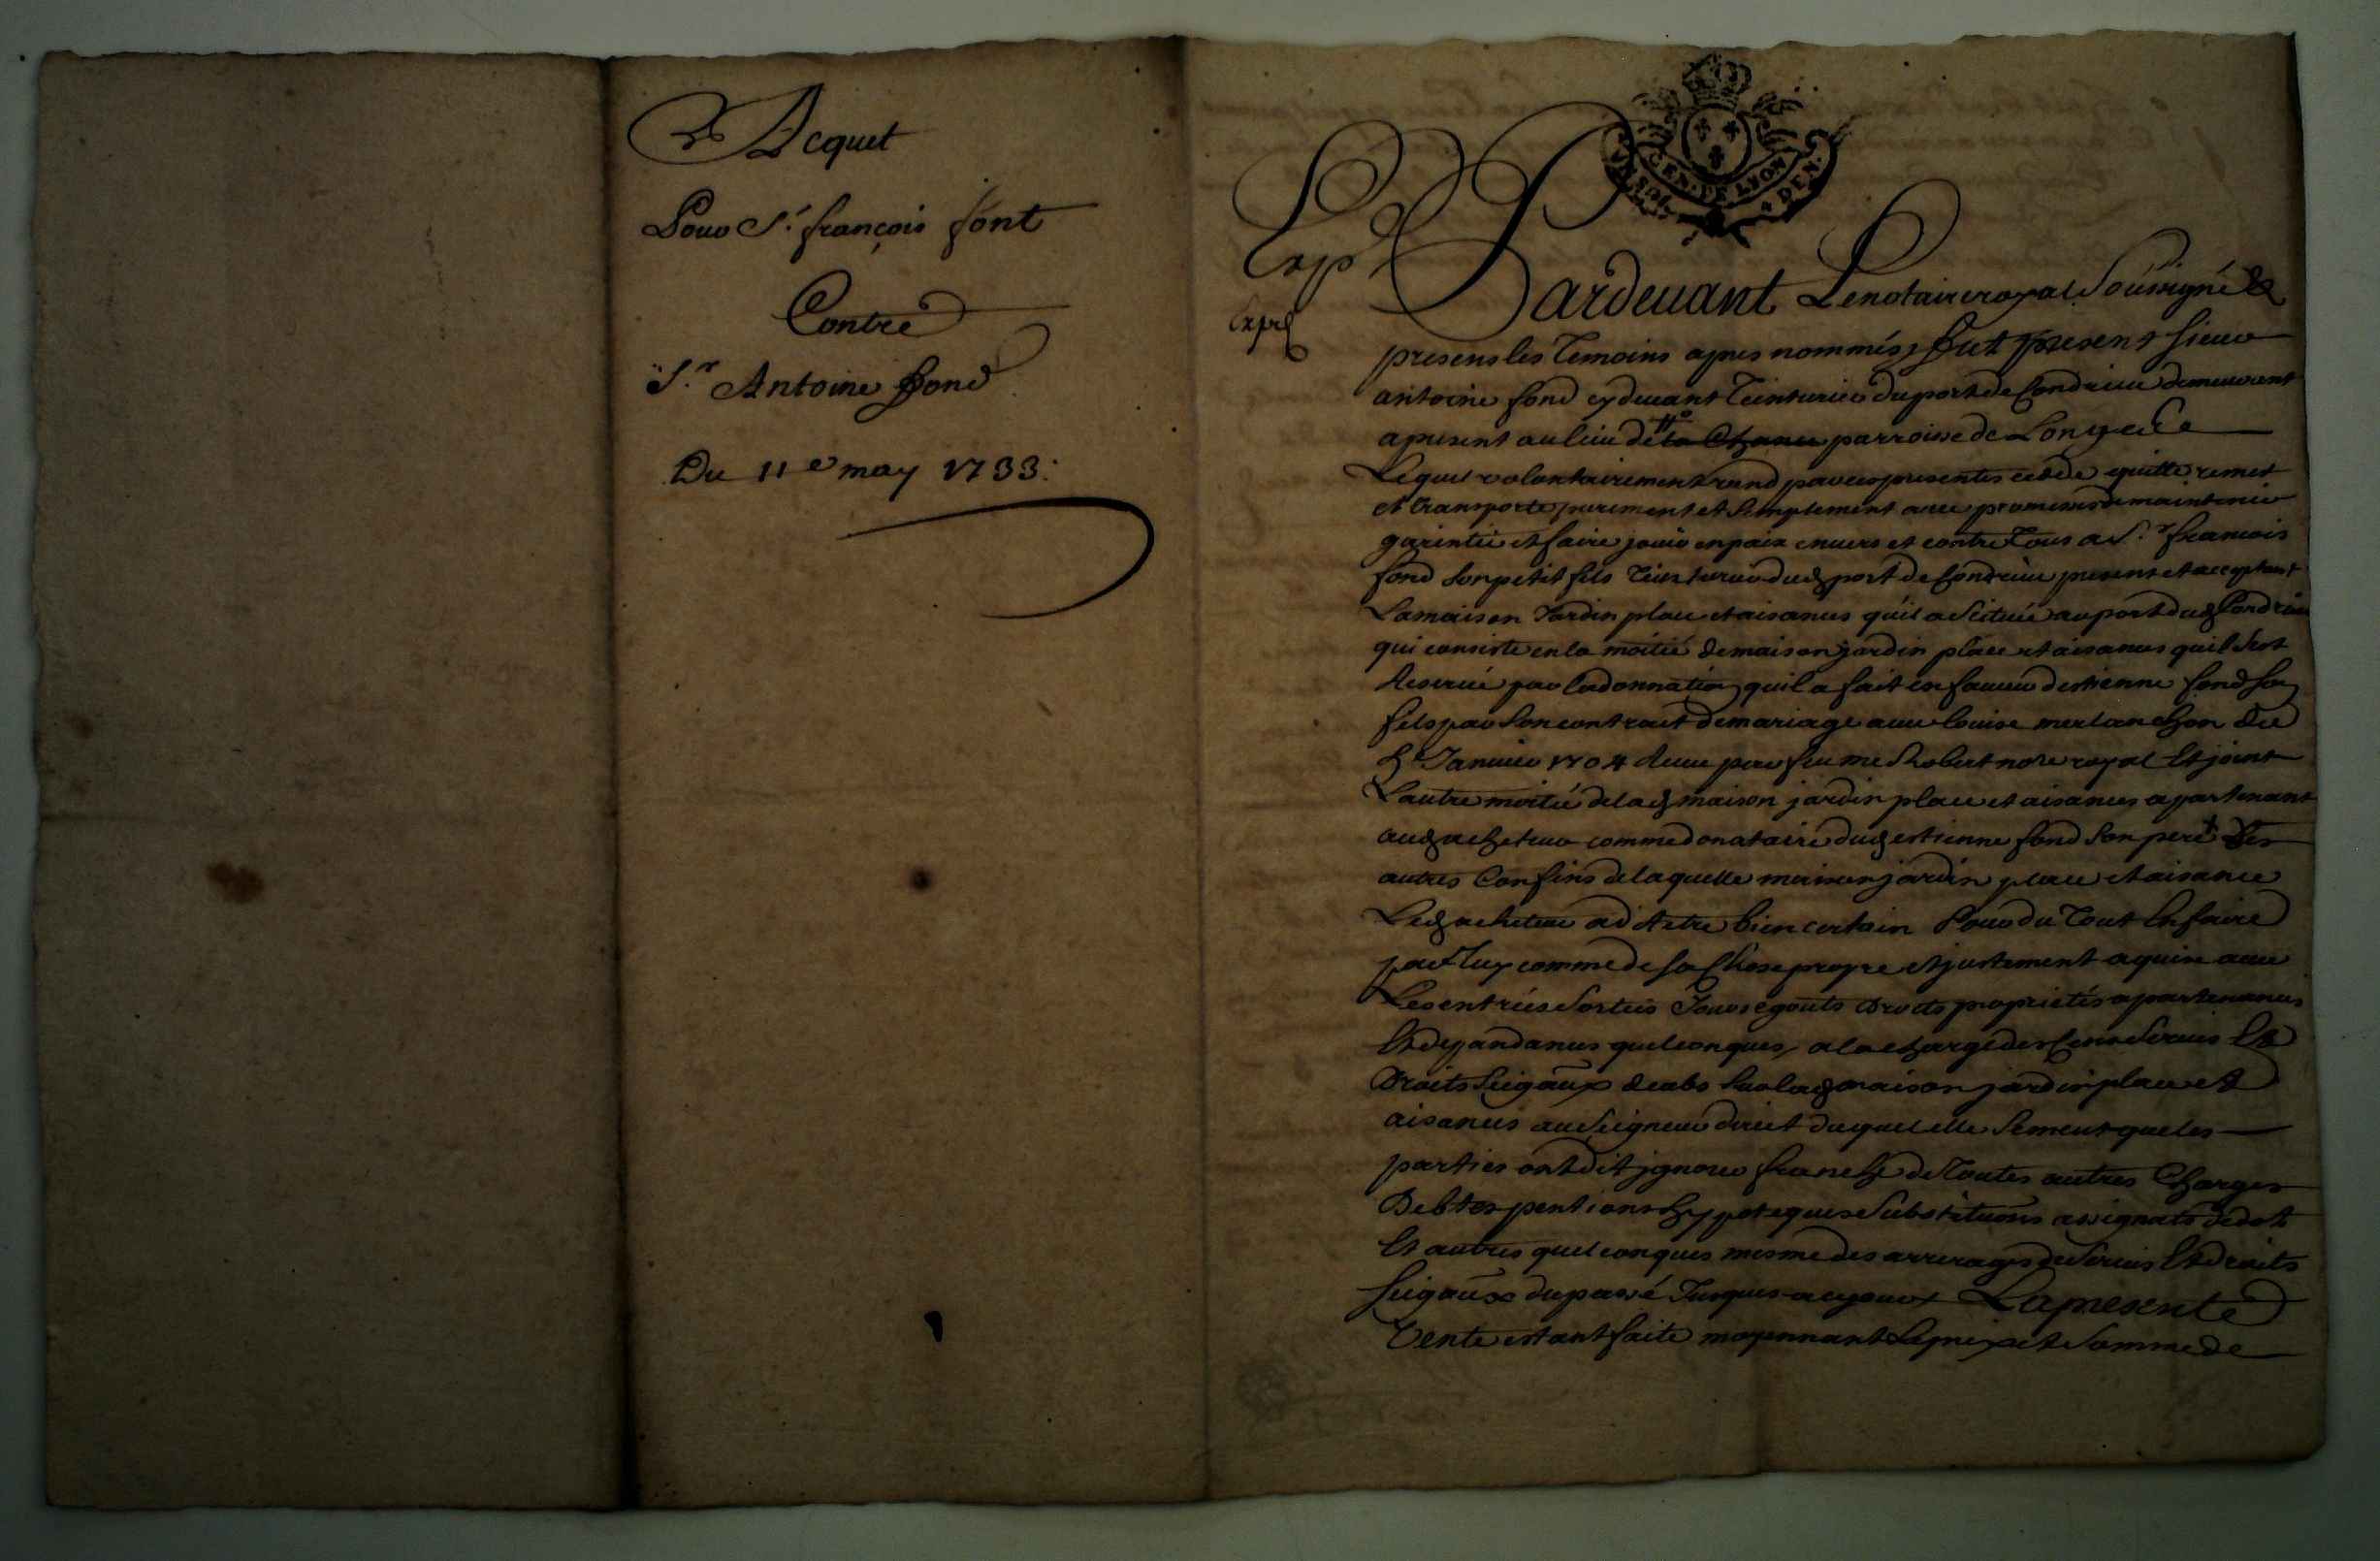 Acquet
Pour S.r françois font
Contre
S.r Antoine fond
Du 11e may 1733.
GEN. DE LYON
4 DEN.
Exp.d
Expd
Pardeuant Le notaire royal Soussigné &
presens les Temoins apres nommés, fut present sieur
antoine fond cy deuant Teinturier du port de Condrieu demeurent
a present au lieu de parroisse de Longecle
Lequel volontairement vend par ces presentes cedde quitte remet
et transporte purement et simplement auec promesse de maintenir
garentir et faire jouir en paix enuers et contre Tous a S.r francois
fond son petit fils Teinturier dud port de Condrieu present et acceptant
La maison Jardin place et aisances qu'il a scituée au port dud Condrieu
qui consiste en la moitié de maison jardin place et aisances quil s'est
Reservée par la donnation quil a fait en faueur destienne fond son
fils par son contrait de mariage auec Louise merlanchon du
5e Januier 1704 Receu par feu me Robert nore royal Et joint
L'autre moitié de lad maison jardin place et aisances apartenant
aud acheteur comme donataire dud estienne fond son pere Les
autres Confins de laquelle maison jardin place et aisance
Led acheteur a dit Estre bien certain Pour du Tout En faire
par Luy comme de sa Chose propre et justement aquise auec
Les entrées Sorties Jours egouts droits proprietés apartenances
Et depandances quelconques, a la charge des Cens Seruis Et
Droits Seigaux deubs Sur lad maison jardin place et
aisances au Seigneur direct duquel elle se meut que les
parties ont dit jgnorer franche de Toutes autres Charges
Debtes pentions hypoteques Substitutions assignats de dot
Et autres quelconques mesme des arrerages de Seruis Et droits
Seigaux du passé Jusques a ce jour La presente
Vente estant faite moyennant Le prix et Somme de